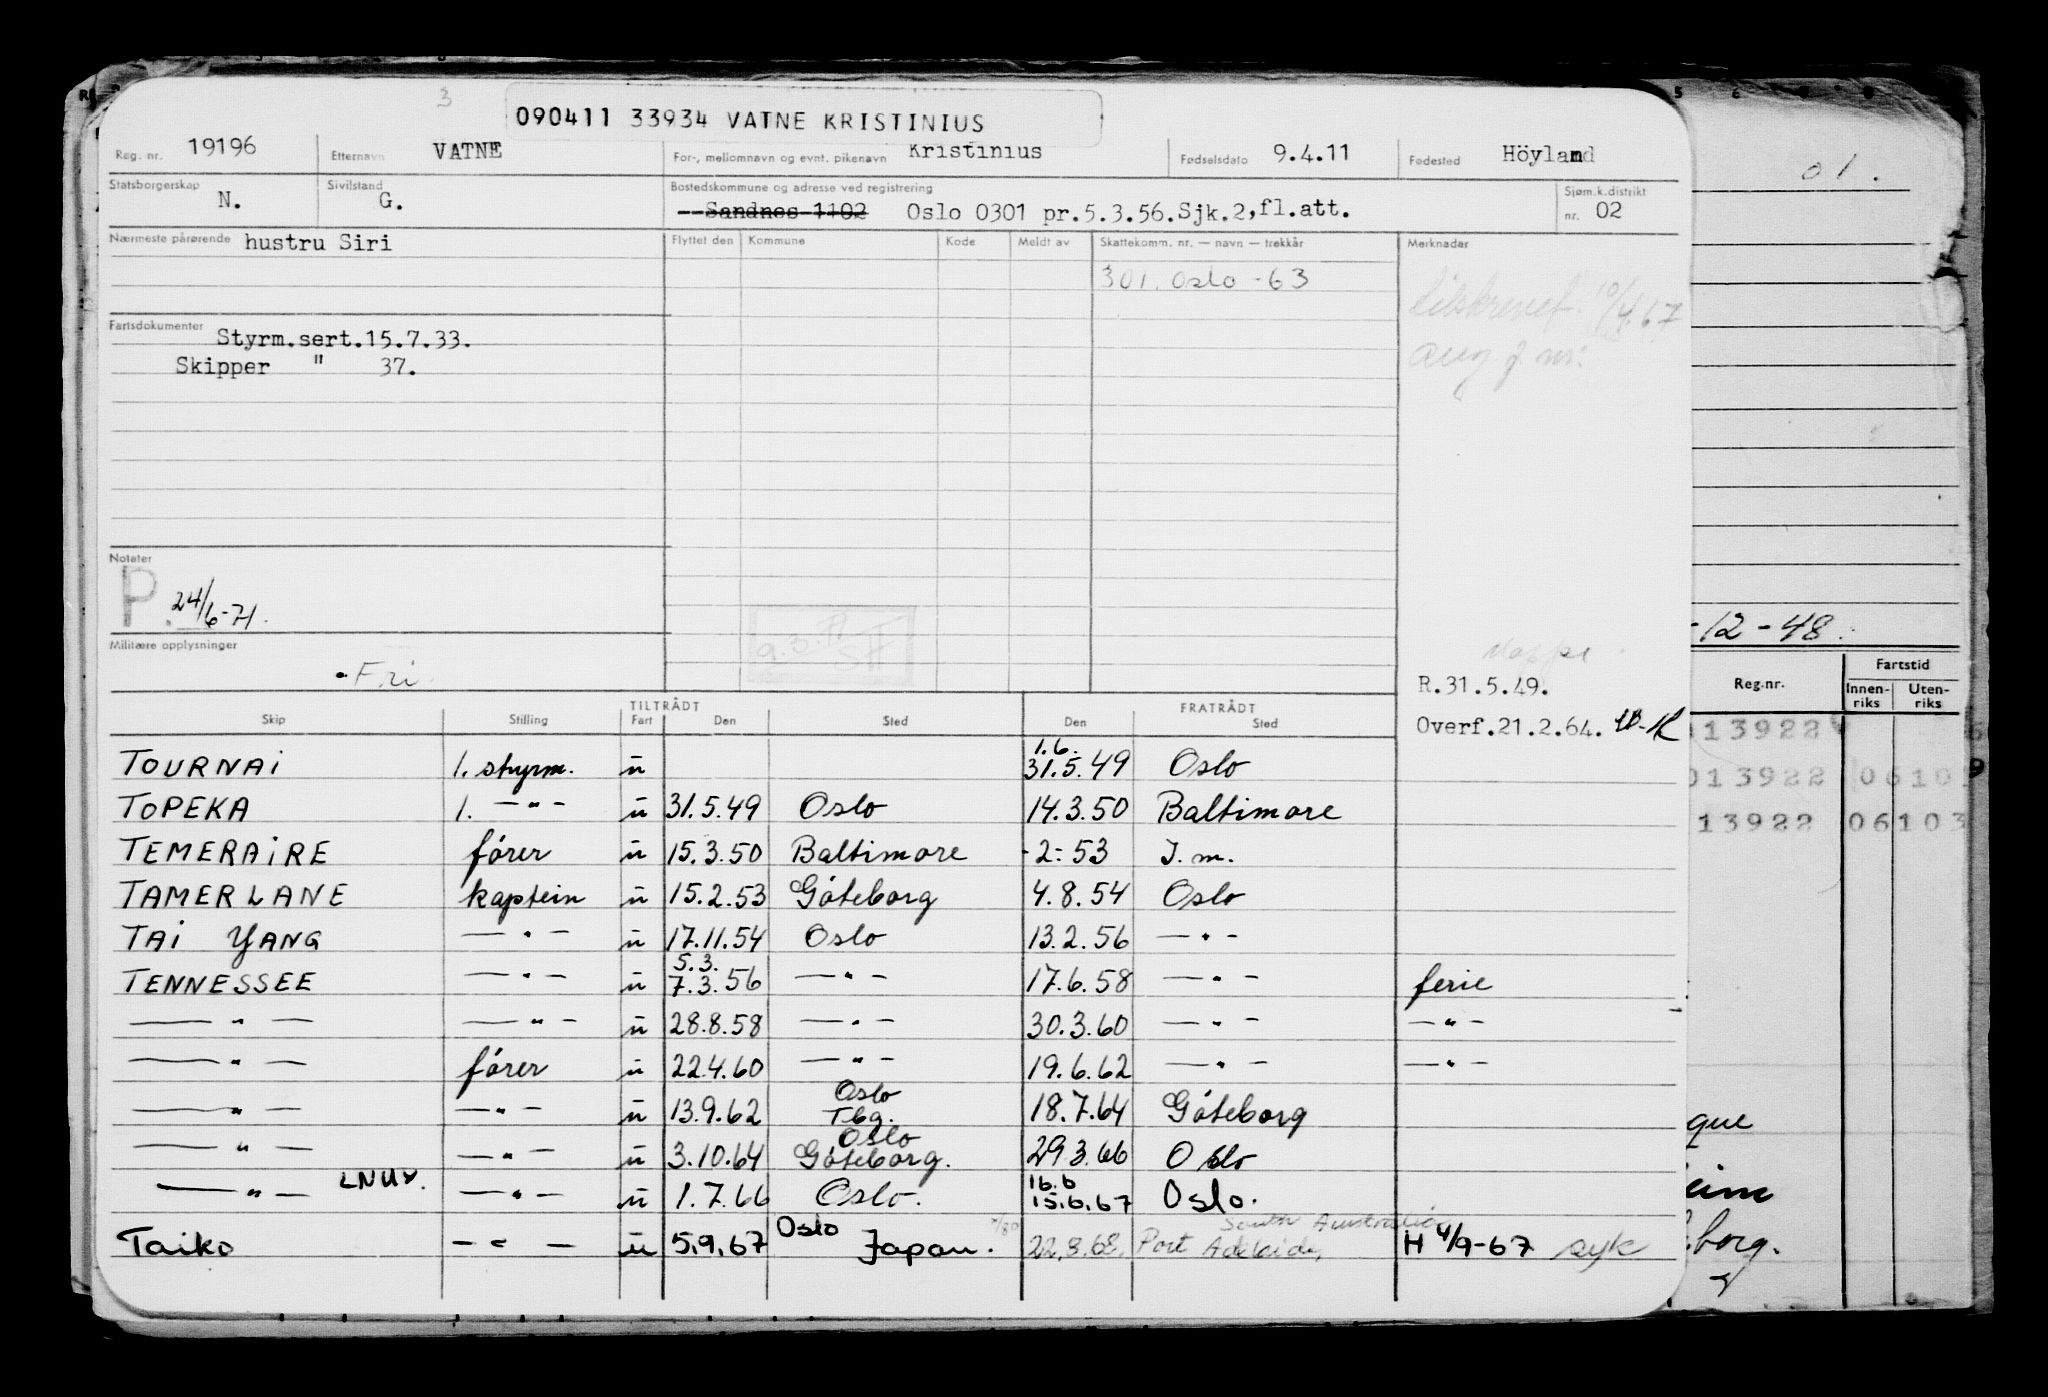 3
090411 33934 VATNE KRISTINIUS
Reg. nr. 19196 Etternavn VATNE For-, mellomnavn og evnt. pikenavn Kristinius Fødselsdato 9.4.11 Fødested Höyland
01.
Statsborgerskap N. Sivilstand G. Bostedskommune og adresse ved registrering --Sandnes 1102 Oslo 0301 pr.5.3.56.Sjk.2,fl.att. Sjøm.k.distrikt nr. 02
Nærmeste pårørende hustru Siri Flyttet den Kommune Kode Meldt av Skattekomm. nr. — navn — trekkår Merknader
301. Oslo - 63
10/4.67
Fartsdokumenter Styrm.sert.15.7.33.
Skipper " 37.
Notater
P. 24/6-71.
-12-48.
Militære opplysninger
Fri
R.31.5.49.
Overf.21.2.64.
Reg.nr. Fartstid
Innen-riks Uten-riks
TILTRÅDT FRATRÅDT
Skip Stilling Fart Den Sted Den Sted
13922
TOURNAI 1. styrm. u 1.6. 31.5.49 Oslo
013922 0610
TOPEKA 1. —"— u 31.5.49 Oslo 14.3.50 Baltimore
13922 06103
TEMERAIRE fører u 15.3.50 Baltimore -2-53 I.m.
TAMERLANE kaptein u 15.2.53 Göteborg 4.8.54 Oslo
TAI YANG —"— u 17.11.54 Oslo 13.2.56 —"—
TENNESSEE —"— u 5.3. 7.3.56 —"— 17.6.58 —"— ferie
—"— —"— u 28.8.58 —"— 30.3.60 —"— —"—
—"— fører u 22.4.60 —"— 19.6.62 —"— —"—
—"— —"— u 13.9.62 Oslo Tbg. 18.7.64 Göteborg
que
—"— —"— u 3.10.64 Oslo Göteborg. 29.3.66 Oslo
—"— LNUV. —"— u 1.7.66 Oslo. 16.6 15.6.67 Oslo.
eim
Taiko —"— u 5.9.67 Oslo Japan. 22.8.68. Port Adelaide, South Australia H 4/9-67 syk
borg.